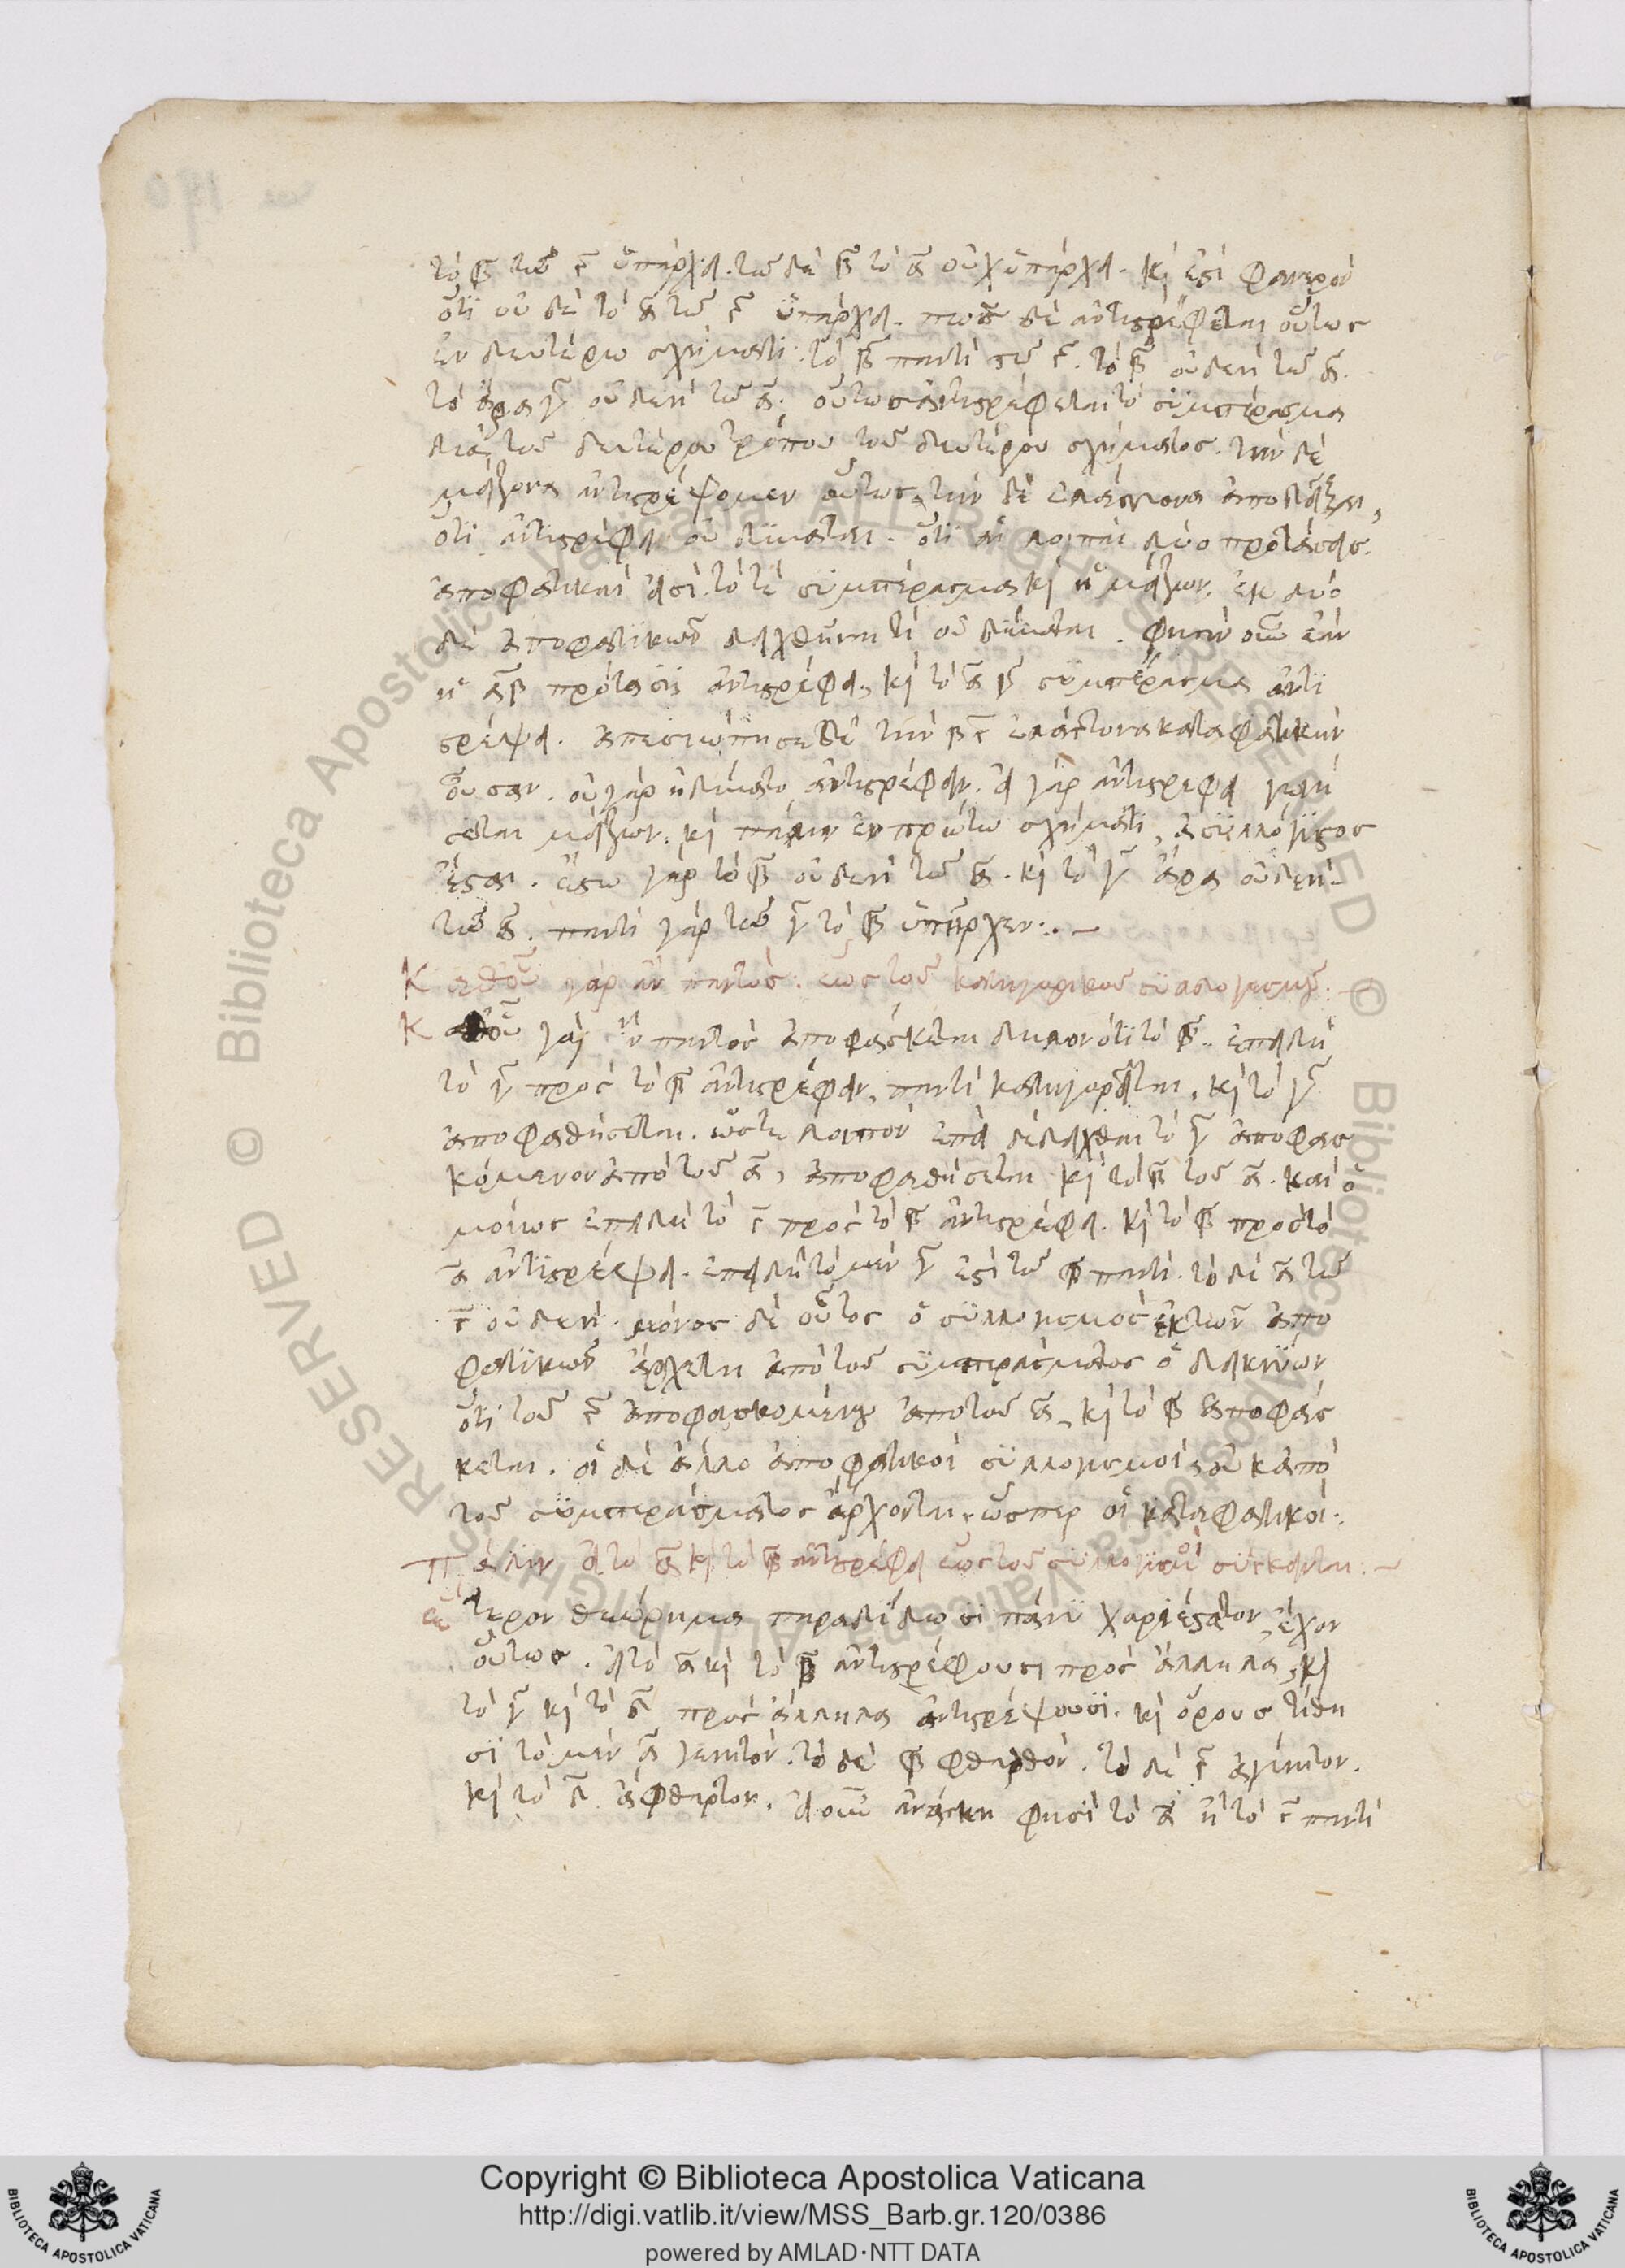 τὸ β τῶ γ ὑπάρχει. τῶ δὲ β τὸ α οὐχ ὑπάρχει. κὶ ἐστὶ φανερὸν
ὅτι οὐδὲ τὸ α τῶ γ ὑπάρχει. πῶς δὲ ἀντιστρέφεται οὕτως
ἐν δευτέρω σχήματι. τὸ β παντὶ τῶ γ. τὸ β οὐδενὶ τῶ α.
τὸ ἄρα γ οὐδενὶ τῶ α. οὕτως ἀντιστρέφεται τὸ συμπέρασμα
διὰ τοῦ δευτέρου τρόπου τοῦ δευτέρου σχήματος. τὴν δὲ
μείζονα ἀντιστρέψομεν οὕτως, τὴν δὲ ἐλάττονα ἀποδεῖξαι,
ὅτι ἀντιστρέφει οὐ δύναται. ὅτι αἱ λοιπαὶ δύο προτάσεις.
ἀποφατικαὶ εἰσὶ. τό τε συμπέρασμα κὶ ἡ μείζων. ἐκ δύο
δὲ ἀποφατικῶν δειχθῆναί τι οὐ δύναται. φησὶν οὖν ἐὰν
ἡ αβ πρότασις ἀντιστρέφει, κὶ τὸ αγ συμπέρασμα ἀντι
στρέψει. ἀπεσιώπησε δὲ τὴν βγ ἐλάττονα καταφατικὴν
οὖσαν. οὐ γὰρ ἠδύνατο ἀντιστρέφειν. εἰ γὰρ ἀντιστρέφει γενή
σεται μείζων. κὶ πάλιν ἐν πρώτω σχήματι, ἀσυλλόγιστος
ἔσται. ἔστω γὰρ τὸ β οὐδενὶ τῶ α. κὶ τὸ γ ἄρα οὐδενὶ
τῶ α. παντὶ γὰρ τῶ γ τὸ β ὑπῆρχεν:. ~
Καθ' οὗ γὰρ ἂν παντός: ἕως τοῦ κατηγορικοῦ συλλογισμοῦ: ~
Καθ' οὗ γὰρ ἂν παντὸς ἀποφάσκεται δηλονότι τὸ β. ἐπειδὴ
τὸ γ πρὸς τὸ β ἀντιστρέφειν, παντὶ κατηγορεῖται, κὶ τὸ γ
ἀποφαθήσεται. ὥστε λοιπὸν ἐπεὶ δέδεικται τὸ γ ἀποφασ
κόμενον ἀπὸ τοῦ α, ἀποφαθήσεται κὶ τὸ β τοῦ α. καὶ ὁ
μοίως ἐπειδὴ τὸ γ πρὸς τὸ β ἀντιστρέφει. κὶ τὸ β πρὸς τὸ
α ἀντιστρέψει. ἐπειδὴ τὸ μὲν γ ἐστὶ τῶ β παντὶ. τὸ δὲ α τῶ
γ οὐδενί. μόνος δὲ οὗτος ὁ συλλογισμὸς ἐκ τῶν ἀπο
φατικῶν ἄρχεται ἀπὸ τοῦ συμπεράσματος ὁ δεικνύων
ὅτι τοῦ γ ἀποφασκομένου ἀπὸ τοῦ α, κὶ τὸ β ἀποφάσ
κεται. οἱ δὲ ἄλλο ἀποφατικοὶ συλλογισμοὶ, οὐκ ἀπὸ
τοῦ συμπεράσματος ἄρχονται, ὥσπερ οἱ καταφατικοί:.
Πάλιν εἰ τὸ α κὶ τὸ β ἀντιστρέφει ἕως τοῦ συλλογισμοὶ σύγκεινται: ~
ἕτερον θεώρημα παραδίδωσι πάνυ χαριέστατον, ἔχον
οὕτως. εἰ τὸ α κὶ τὸ β ἀντιστρέφουσι πρὸς ἄλληλα, κὶ
τὸ γ κὶ τὸ δ πρὸς ἄλληλα ἀντιστρέψουσι. κὶ ὅρους τίθη
σι τὸ μὲν α γενητόν. τὸ δὲ β φθαρθόν. τὸ δὲ γ ἀγένητον.
κὶ τὸ δ ἄφθαρτον. εἰ οὖν ἀνάγκη φησὶ τὸ α ἢ τὸ γ παντὶ
Copyright © Biblioteca Apostolica Vaticana
http://digi.vatlib.it/view/MSS_Barb.gr.120/0386
powered by AMLAD·NTT DATA